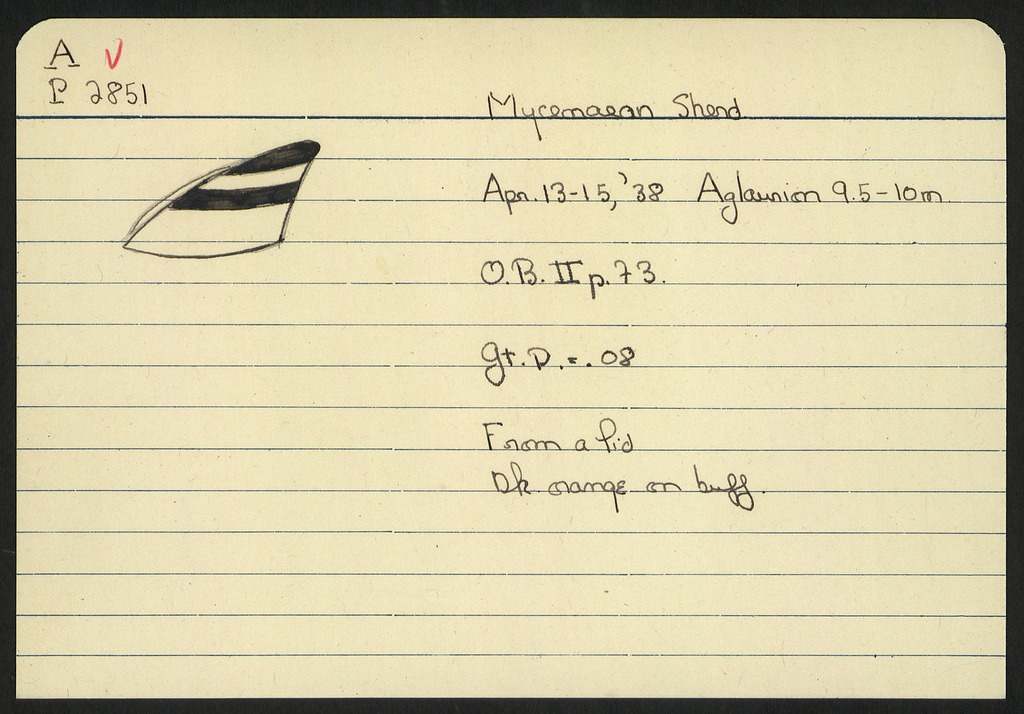 A
P 2851
Mycenaean Sherd
Apr. 13-15, '38 Aglaurion 9.5-10m
O.B. II p. 73.
Gt. D. = .08
From a lid
Dk orange on buff.